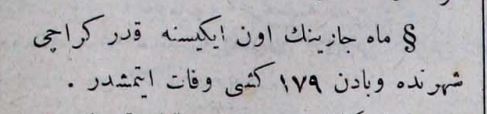 § ماه جارينك اون ايكيسنه قدر كراچی
شهرنده وبادن ١٧٩ كشی وفات ايتمشدر .